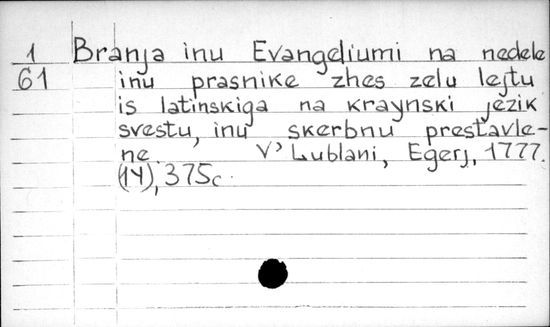 1
61
Branja inu Evangeliumi na nedele
inu prasnike zhes zelu lejtu
is latinskiga na kraynski jezik
svestu, inu skerbnu prestavle-
ne. V' Lublani, Egerj, 1777.
(14), 375c.